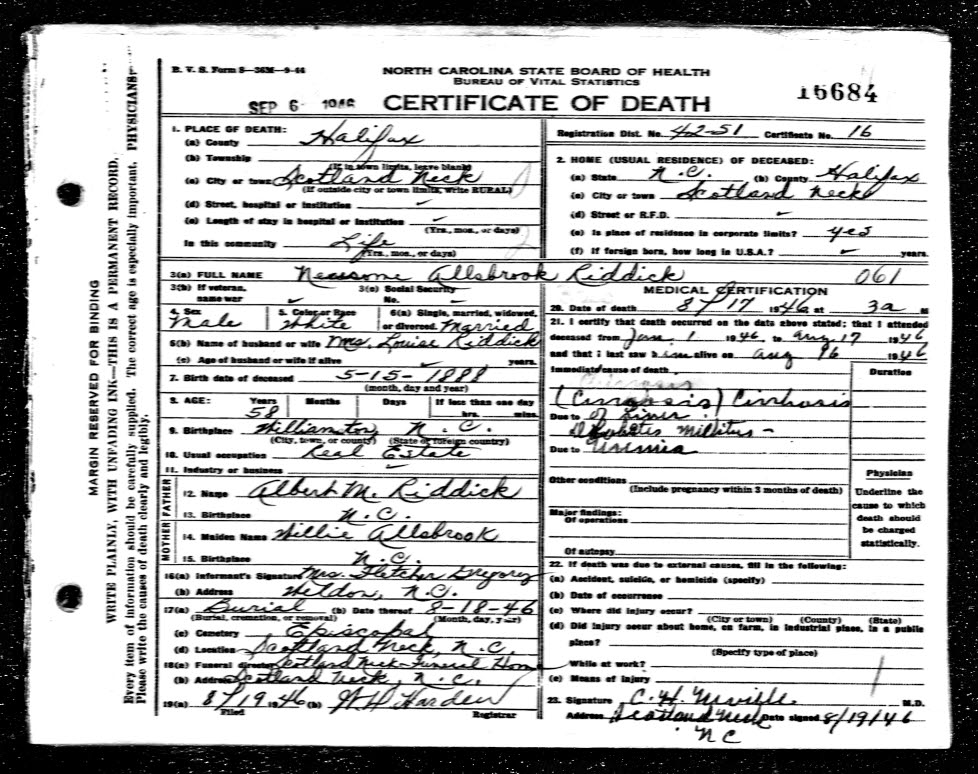 B. V. S. Form 8—36M—9-44
NORTH CAROLINA STATE BOARD OF HEALTH
BUREAU OF VITAL STATISTICS
SEP 6 1946 CERTIFICATE OF DEATH 15684
MARGIN RESERVED FOR BINDING
WRITE PLAINLY, WITH UNFADING INK—THIS IS A PERMANENT RECORD.
Every item of information should be carefully supplied. The correct age is especially important. PHYSICIANS:
Please write the causes of death clearly and legibly.
1. PLACE OF DEATH:
(a) County Halifax
(b) Township
(If in town limits, leave blank)
(c) City or town Scotland Neck
(If outside city or town limits, write RURAL)
(d) Street, hospital or institution ✓
(e) Length of stay in hospital or institution ✓
(Yrs., mos., or days)
In this community Life
(Yrs., mos., or days)
Registration Dist. No. 42-51 Certificate No. 16
2. HOME (USUAL RESIDENCE) OF DECEASED:
(a) State N.C. (b) County Halifax
(c) City or town Scotland Neck
(d) Street or R.F.D. ✓
(e) Is place of residence in corporate limits? yes
(f) If foreign born, how long in U.S.A.? ✓ years.
3(a) FULL NAME Newsome Allsbrook Riddick 061
3(b) If veteran, name war ✓ 3(c) Social Security No. ✓
4. Sex Male 5. Color or Race White 6(a) Single, married, widowed, or divorced. Married
6(b) Name of husband or wife Mrs. Louise Riddick
(c) Age of husband or wife if alive ✓ years.
7. Birth date of deceased 5-15-1888
(month, day and year)
8. AGE: Years 58 Months Days If less than one day hrs. mins.
9. Birthplace Williamston, N.C.
(City, town, or county) (State or foreign country)
10. Usual occupation Real Estate
11. Industry or business ✓
FATHER
12. Name Albert M. Riddick
13. Birthplace N.C.
MOTHER
14. Maiden Name Willie Allsbrook
15. Birthplace N.C.
16(a) Informant's Signature Mrs. Fletcher Gregory
(b) Address Weldon, N.C.
17(a) Burial (b) Date thereof 8-18-46
(Burial, cremation, or removal) (Month, day, year)
(c) Cemetery Episcopal
(d) Location Scotland Neck, N.C.
18(a) Funeral director Scotland Neck Funeral Home
(b) Address Scotland Neck, N.C.
19(a) 8/19 1946 (b) Harden
Filed Registrar
MEDICAL CERTIFICATION
20. Date of death 8/17 1946 at 3a M
21. I certify that death occurred on the date above stated; that I attended
deceased from Jan. 1 1946, to Aug 17 1946
and that I last saw him alive on Aug 16 1946
Immediate cause of death Duration
(Cirrhosis) Cirrhosis
Due to of Liver.
Diabetis Millitus—
Due to Uremia
Other conditions
(Include pregnancy within 3 months of death)
Major findings:
Of operations
Of autopsy
Physician
Underline the
cause to which
death should
be charged
statistically.
22. If death was due to external causes, fill in the following:
(a) Accident, suicide, or homicide (specify)
(b) Date of occurrence
(c) Where did injury occur?
(City or town) (County) (State)
(d) Did injury occur about home, on farm, in industrial place, in a public
place?
(Specify type of place)
While at work?
(e) Means of injury
23. Signature C. H. M.D.
Address Scotland Neck Date signed 8/19/46
NC